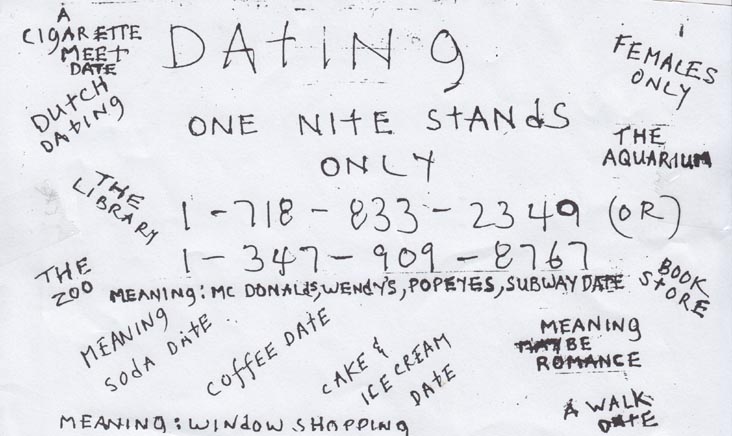 A
CIGARETTE
MEET
DATE
DATING
FEMALES
ONLY
DUTCH
DATING
ONE NITE STANDS
ONLY
THE
AQUARIUM
THE
LIBRARY
1-718-833-2349 (OR)
1-347-909-8767
THE
ZOO
BOOK
STORE
MEANING: MC DONALDS, WENDY'S, POPEYES, SUBWAY DATE
MEANING
SODA DATE
COFFEE DATE
CAKE &
ICE CREAM
DATE
MEANING
MAYBE
ROMANCE
A WALK
DATE
MEANING: WINDOW SHOPPING